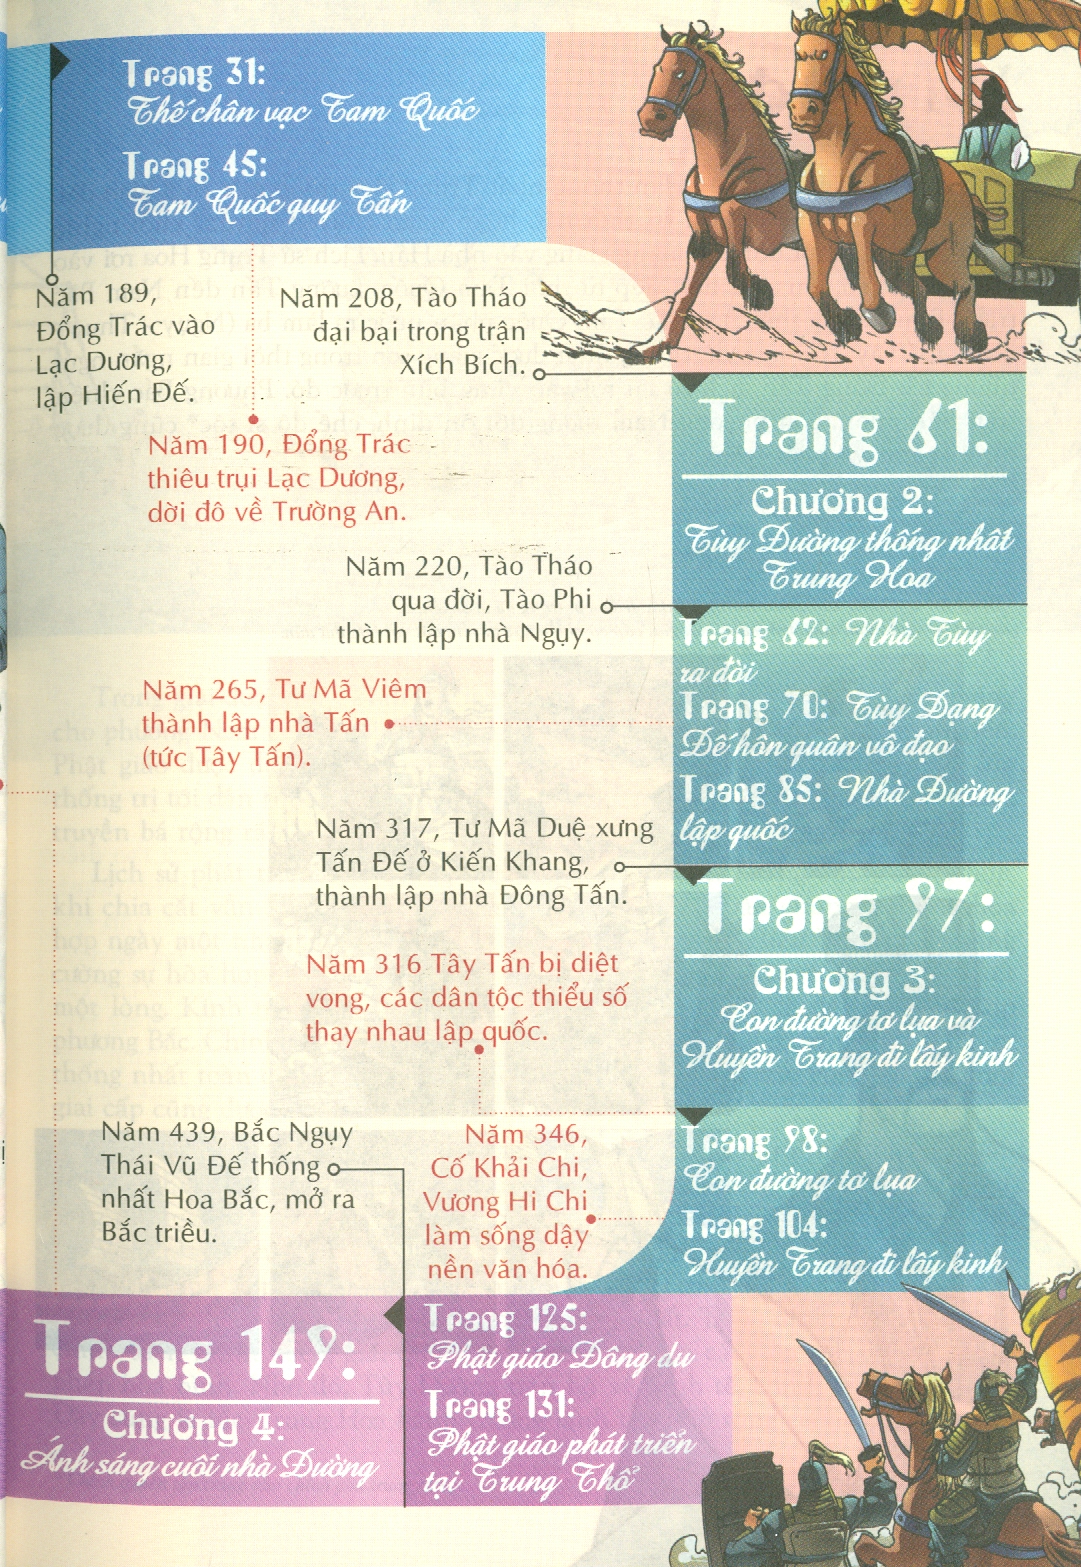 Trang 31:
Thế chân vạc Tam Quốc
Trang 45:
Tam Quốc quy Tấn
Năm 189,
Đổng Trác vào
Lạc Dương,
lập Hiến Đế.
Năm 208, Tào Tháo
đại bại trong trận
Xích Bích.
Năm 190, Đổng Trác
thiêu trụi Lạc Dương,
dời đô về Trường An.
Trang 61:
Chương 2:
Tùy Đường thống nhất
Trung Hoa
Năm 220, Tào Tháo
qua đời, Tào Phi
thành lập nhà Ngụy.
Trang 62: Nhà Tùy
ra đời
Trang 70: Tùy Dạng
Đế hôn quân vô đạo
Trang 85: Nhà Đường
lập quốc
Năm 265, Tư Mã Viêm
thành lập nhà Tấn
(tức Tây Tấn).
Năm 317, Tư Mã Duệ xưng
Tấn Đế ở Kiến Khang,
thành lập nhà Đông Tấn.
Trang 97:
Chương 3:
Con đường tơ lụa và
Huyền Trang đi lấy kinh
Năm 316 Tây Tấn bị diệt
vong, các dân tộc thiểu số
thay nhau lập quốc.
Trang 98:
Con đường tơ lụa
Trang 104:
Huyền Trang đi lấy kinh
Năm 439, Bắc Ngụy
Thái Vũ Đế thống
nhất Hoa Bắc, mở ra
Bắc triều.
Năm 346,
Cố Khải Chi,
Vương Hi Chi
làm sống dậy
nền văn hóa.
Trang 149:
Chương 4:
Ánh sáng cuối nhà Đường
Trang 125:
Phật giáo Đông du
Trang 131:
Phật giáo phát triển
tại Trung Thổ